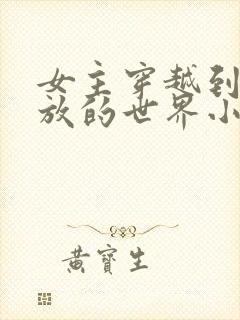 女主穿越到
放的世界小
黄寳生